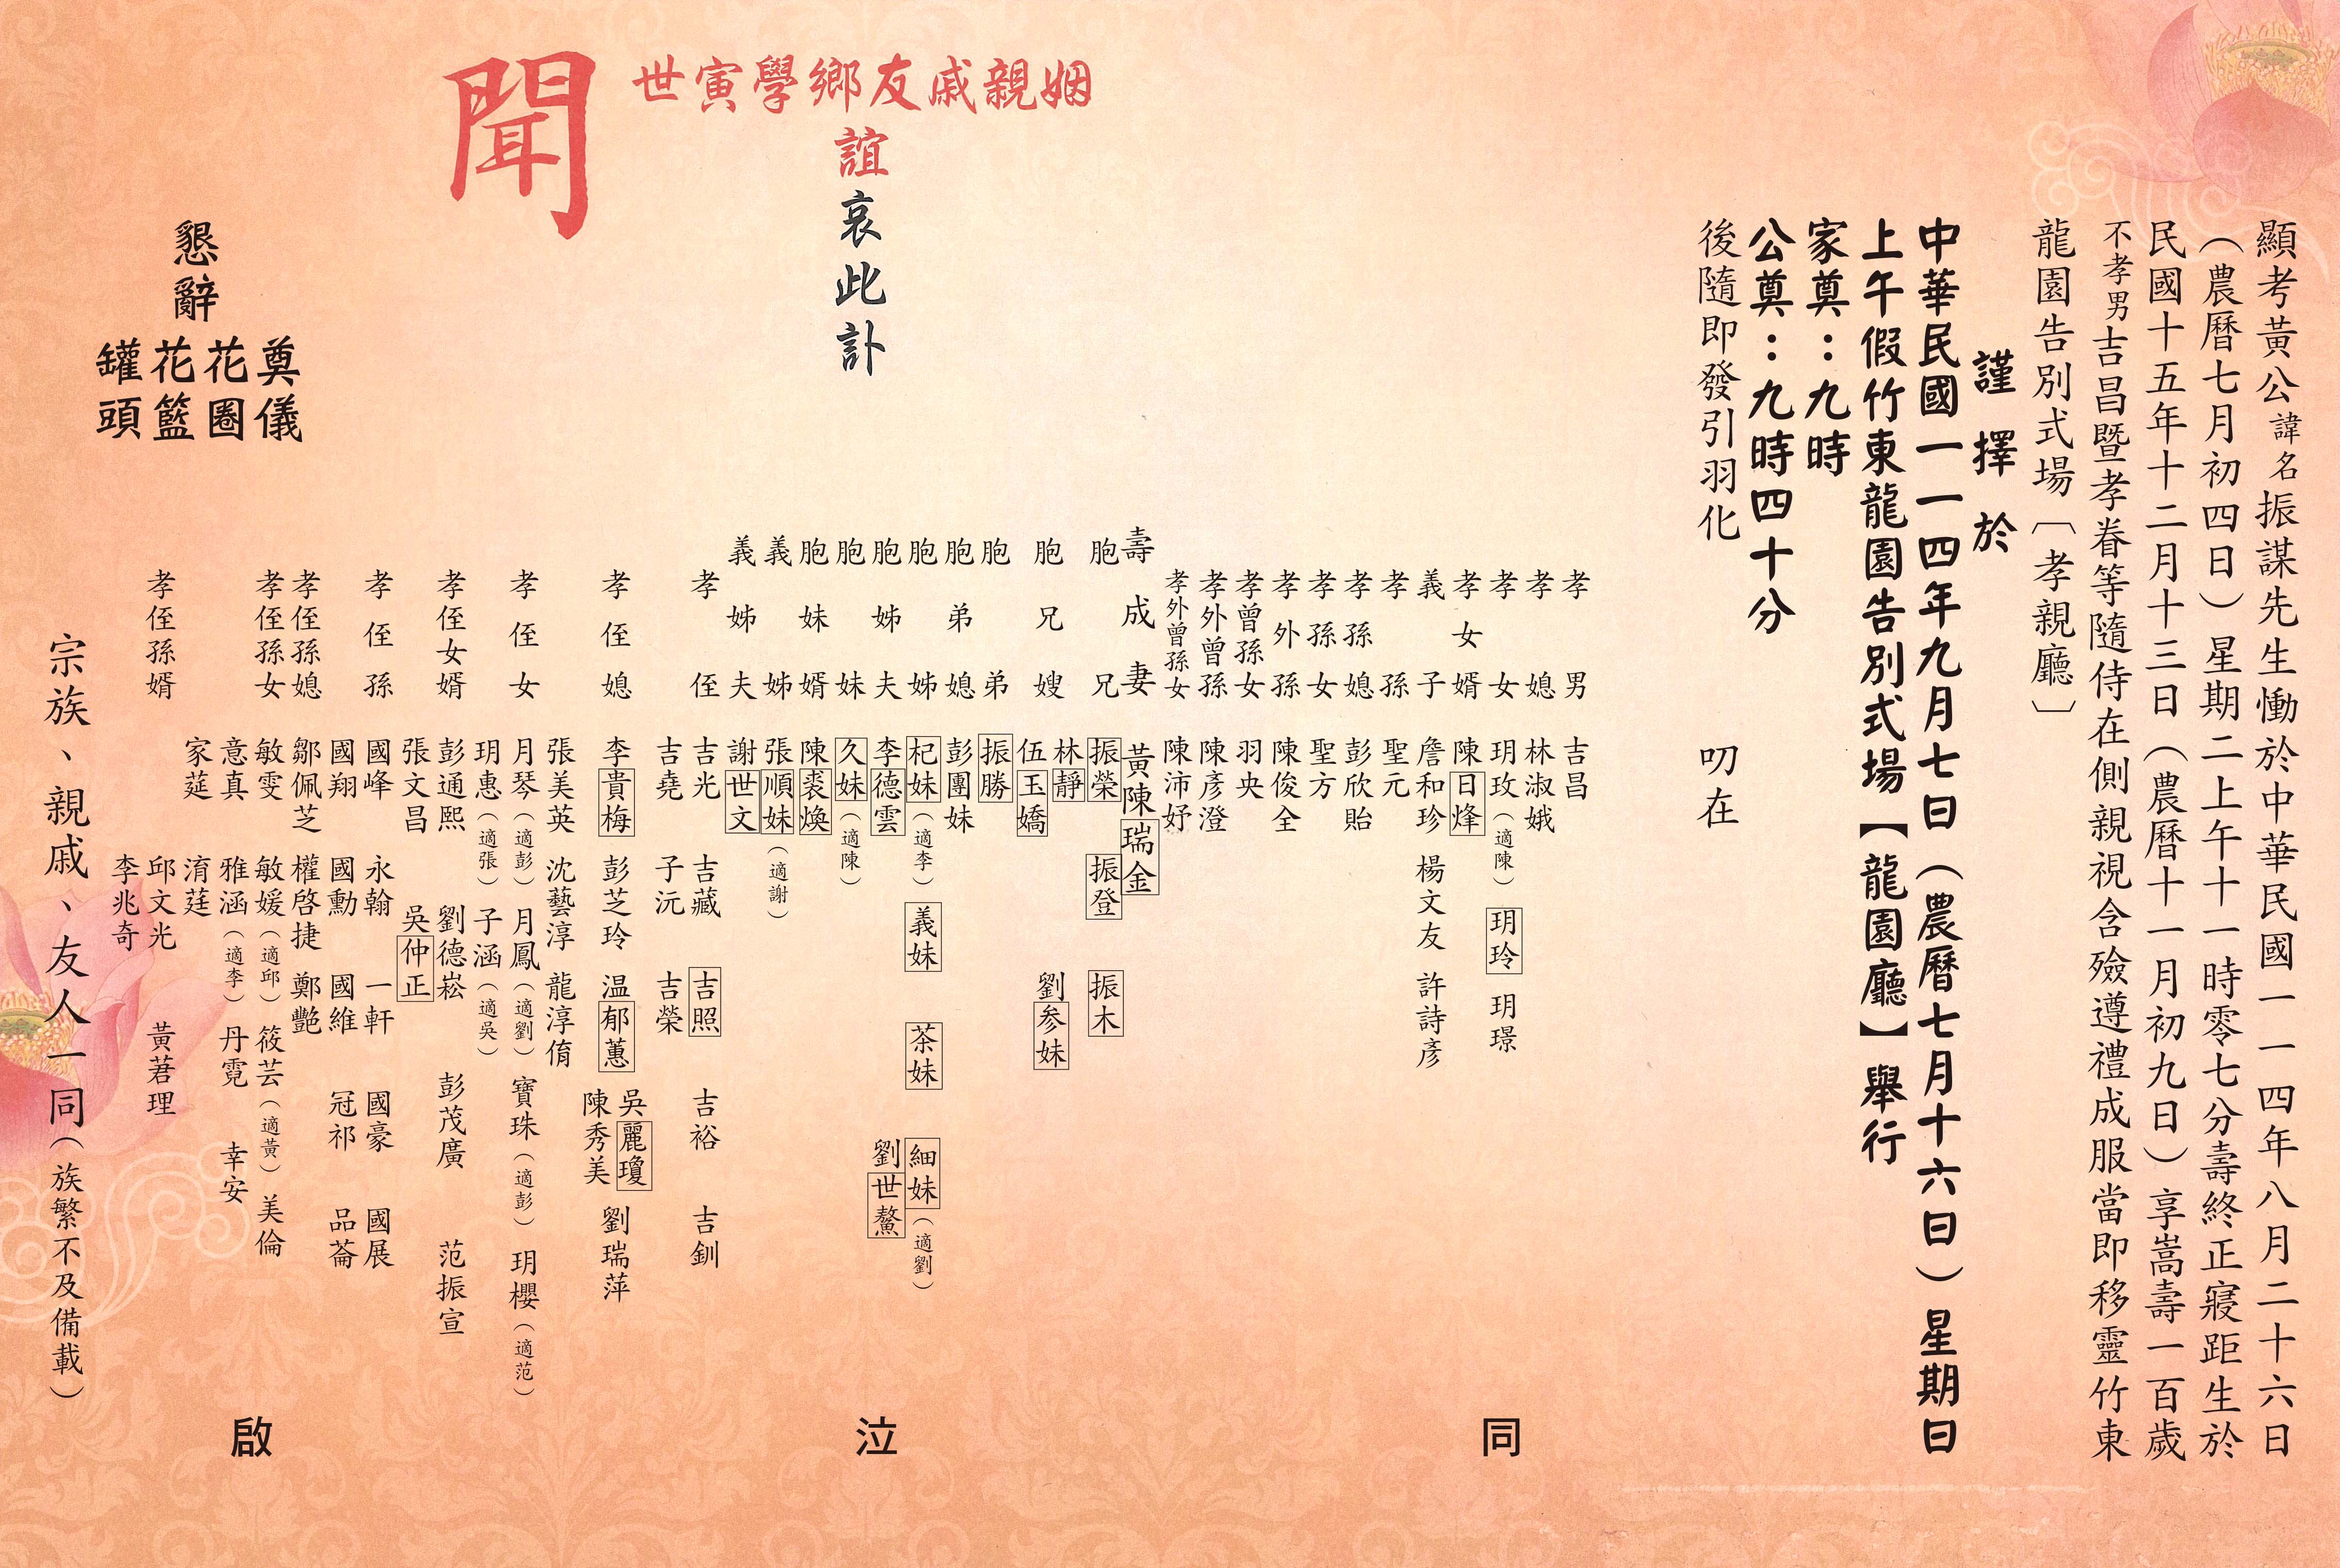 顯考黃公諱名振謀先生慟於中華民國一一四年八月二十六日
（農曆七月初四日）星期二上午十一時零七分壽終正寢距生於
民國十五年十二月十三日（農曆十一月初九日）享嵩壽一百歲
不孝男吉昌暨孝眷等隨侍在側親視含殮遵禮成服當即移靈竹東
龍園告別式場〔孝親廳〕
謹擇於
中華民國一一四年九月七日（農曆七月十六日）星期日
上午假竹東龍園告別式場【龍園廳】舉行
家奠：九時
公奠：九時四十分
後隨即發引羽化
叨在
姻親戚友鄉學寅世
誼哀此訃
聞
孝男 吉昌
孝媳 林淑娥
孝女 玥玫（適陳） 玥玲 玥璟
孝女婿 陳日烽
義子 詹和珍 楊文友 許詩彥
孝孫 聖元
孝孫媳 彭欣貽
孝孫女 聖方
孝外孫 陳俊全
孝曾孫女 羽央
孝外曾孫 陳彥澄
孝外曾孫女 陳沛妤
壽成妻 黃陳瑞金
胞兄 振榮 振登 振木
胞兄嫂 林靜 劉参妹
伍玉嬌
胞弟 振勝
胞弟媳 彭團妹
胞姊 杞妹（適李） 義妹 茶妹 細妹（適劉）
胞姊夫 李德雲 劉世鰲
胞妹 久妹（適陳）
胞妹婿 陳裘煥
義姊 張順妹（適謝）
義姊夫 謝世文
孝侄 吉光 吉藏 吉照 吉裕 吉釧
吉堯 子沅 吉榮
孝侄媳 李貴梅 彭芝玲 温郁蕙 吳麗瓊 陳秀美 劉瑞萍
張美英 沈藝淳 龍淳侑
孝侄女 月琴（適彭） 月鳳（適劉） 寶珠（適彭） 玥櫻（適范）
玥惠（適張） 子涵（適吳）
孝侄女婿 彭通熙 劉德崧 彭茂廣 范振宣
張文昌 吳仲正
孝侄孫 國峰 永翰 一軒 國豪 國展
國翔 國勳 國維 冠祁 品菕
孝侄孫媳 鄒佩芝 權啓捷 鄭艷
孝侄孫女 敏雯 敏媛（適邱） 筱芸（適黃） 美倫
意真 雅涵（適李） 丹霓 幸安
家莛 淯莛
孝侄孫婿 邱文光 黃莙理
李兆奇
宗族、親戚、友人一同（族繁不及備載）
同泣啟
懇辭
奠儀
花圈
花籃
罐頭